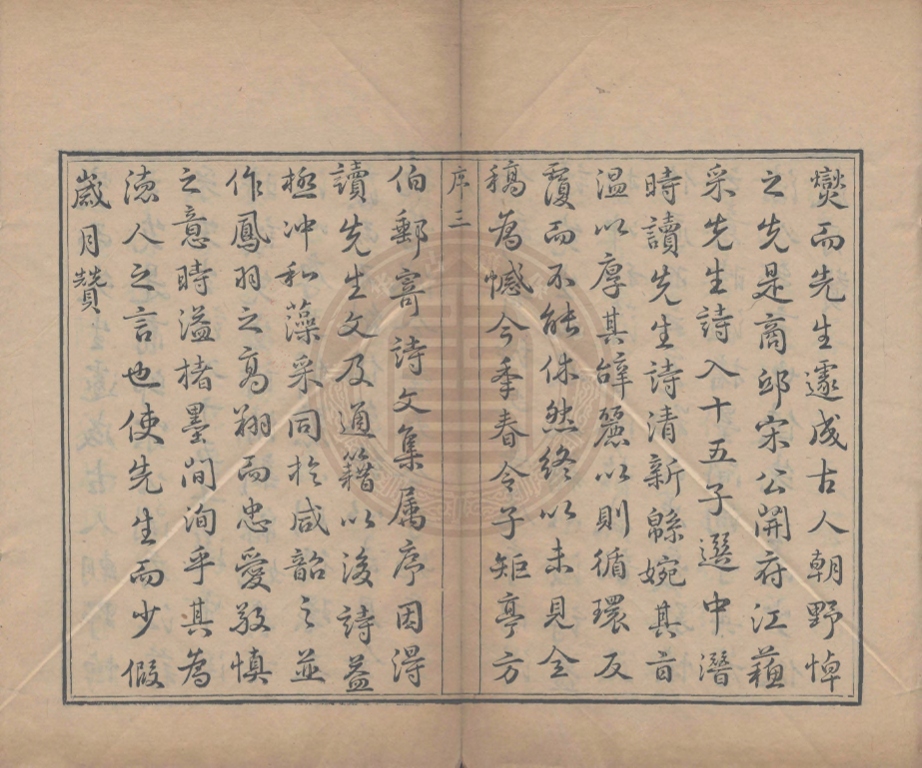 燮而先生遽成古人朝野悼
之先是商邱宋公開府江蘓
采先生詩入十五子選中潛
時讀先生詩清新緜婉其旨
温以厚其辭麗以則循環反
覆而不能休然終以未見全
稿為憾今季春令子矩亭方
序三
伯郵寄詩文集属序因淂
讀先生文及通籍以後詩益
極冲和藻采同於咸韶之並
作鳳羽之高翔而忠愛敬慎
之意時溢楮墨间洵乎其為
徳人之言也使先生而少假
歲月贊